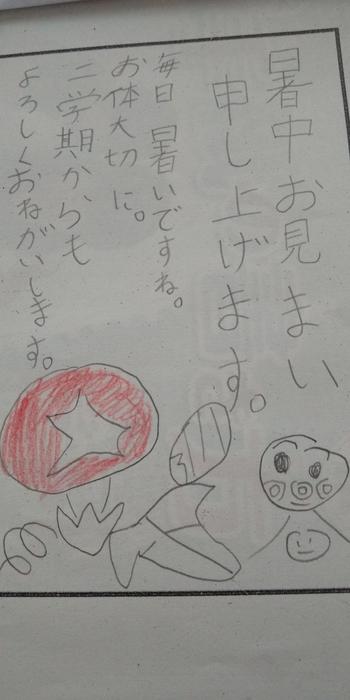 暑中お見まい
申し上げます。
毎日暑いですね。
お体大切に。
二学期からも
よろしくおねがいします。